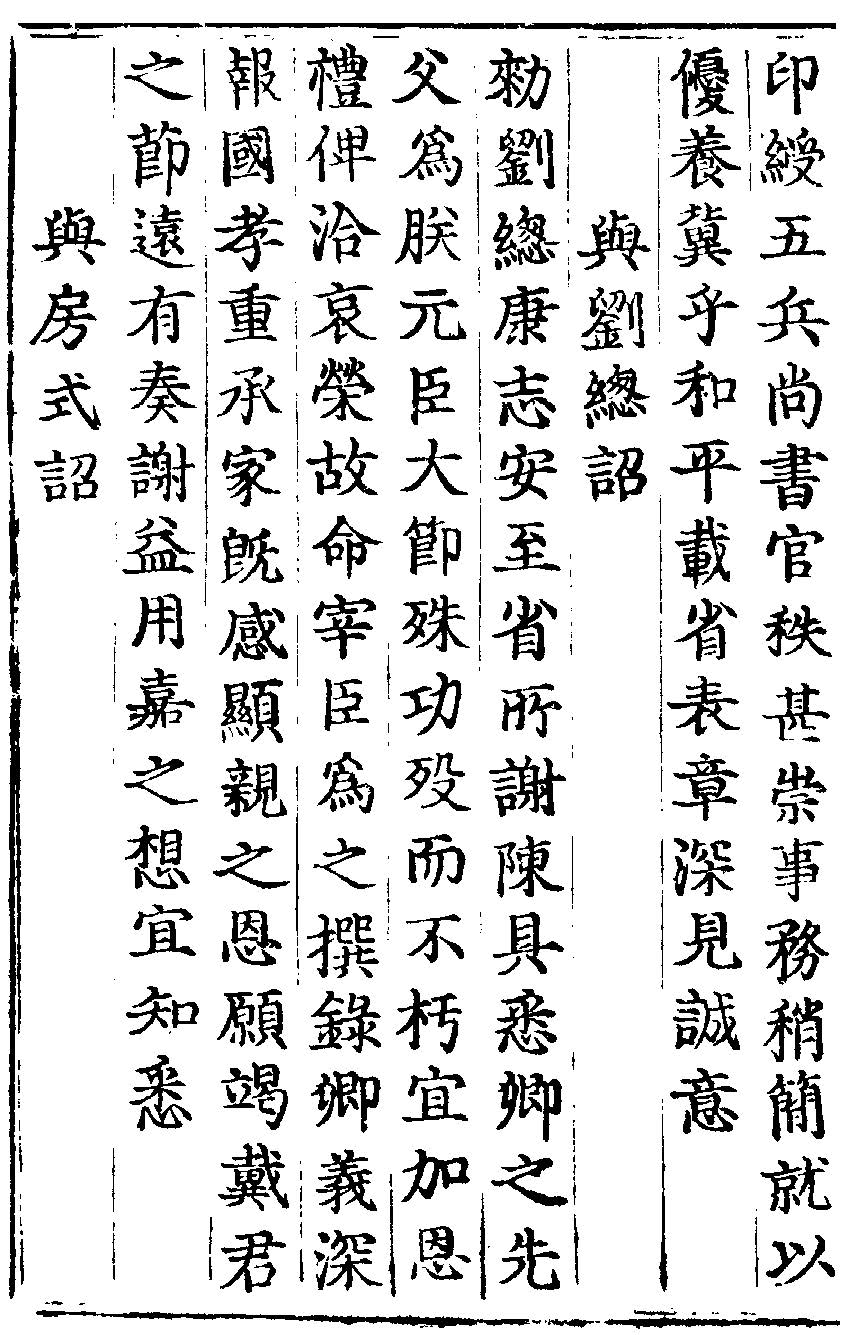 印綬五兵尚書官秩甚崇事務稍簡就以
優養冀乎和平載省表章深見誠意
與劉緫詔
勑劉緫康志安至省所謝陳具悉卿之先
父爲朕元臣大節殊功歿而不朽宜加恩
禮俾洽哀榮故命宰臣爲之撰錄卿義深
報國孝重承家旣感顯親之恩願竭戴君
之節遠有奏謝益用嘉之想宜知悉
與房式詔